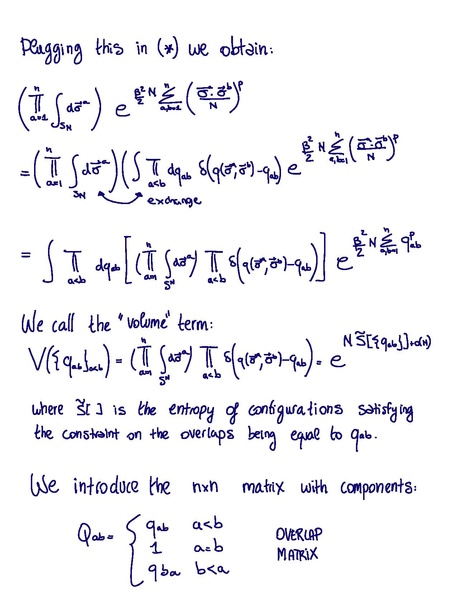 Plugging this in (*) we obtain:
(∏_{a=1}^{n} ∫_{S_N} dσ⃗^a) e^{β²/2 N ∑_{a,b=1}^{n} (σ⃗^a·σ⃗^b/N)^p}
= (∏_{a=1}^{n} ∫_{S_N} dσ⃗^a) (∫ ∏_{a<b} dq_{ab} δ(q(σ⃗^a,σ⃗^b)-q_{ab}) e^{β²/2 N ∑_{a,b=1}^{n} (σ⃗^a·σ⃗^b/N)^p}
exchange
= ∫ ∏_{a<b} dq_{ab} [(∏_{a=1}^{n} ∫_{S^N} dσ⃗^a) ∏_{a<b} δ(q(σ⃗^a,σ⃗^b)-q_{ab})] e^{β²/2 N ∑_{a,b=1}^{n} q_{ab}^p}
We call the "volume" term:
V({q_{ab}}_{a<b}) = (∏_{a=1}^{n} ∫_{S^N} dσ⃗^a) ∏_{a<b} δ(q(σ⃗^a,σ⃗^b)-q_{ab}) = e^{N S̃[{q_{ab}}]+o(N)}
where S̃[ ] is the entropy of configurations satisfying
the constraint on the overlaps being equal to q_{ab}.
We introduce the n×n matrix with components:
Q_{ab} = { q_{ab} a<b
1 a=b
q_{ba} b<a
OVERLAP
MATRIX